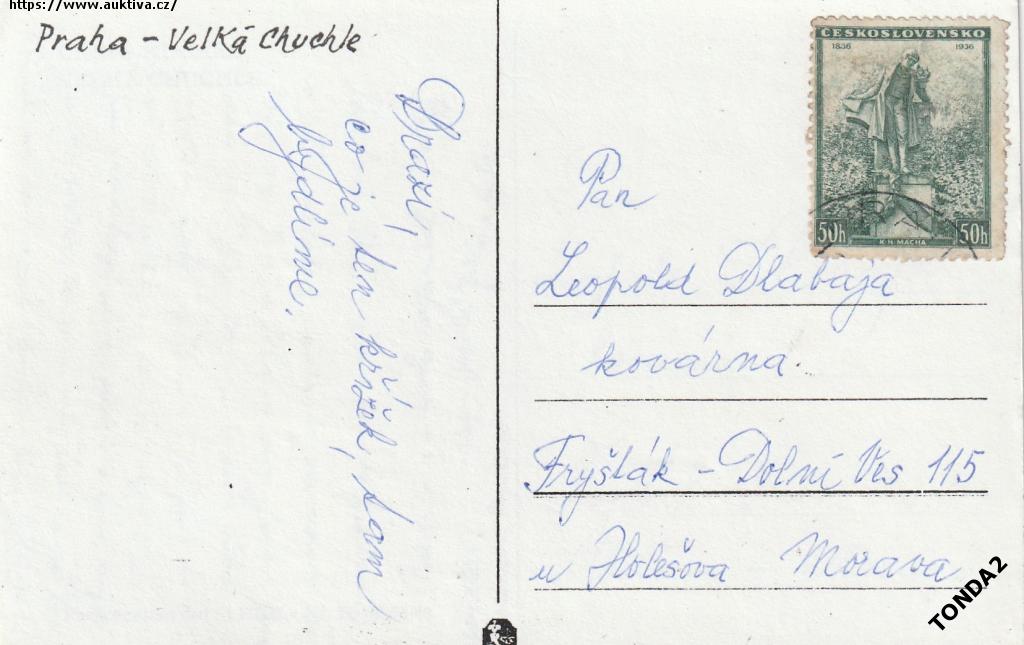 https://www.auktiva.cz/
Praha - Velká Chuchle
Drazí,
co je ten křížek, tam
bydlíme.
ČESKOSLOVENSKO
1836 1936
50h K.H. MÁCHA 50h
Pan
Leopold Dlabaja
kovárna.
Fryšták - Dolní Ves 115
u Holešova Morava
TONDA2